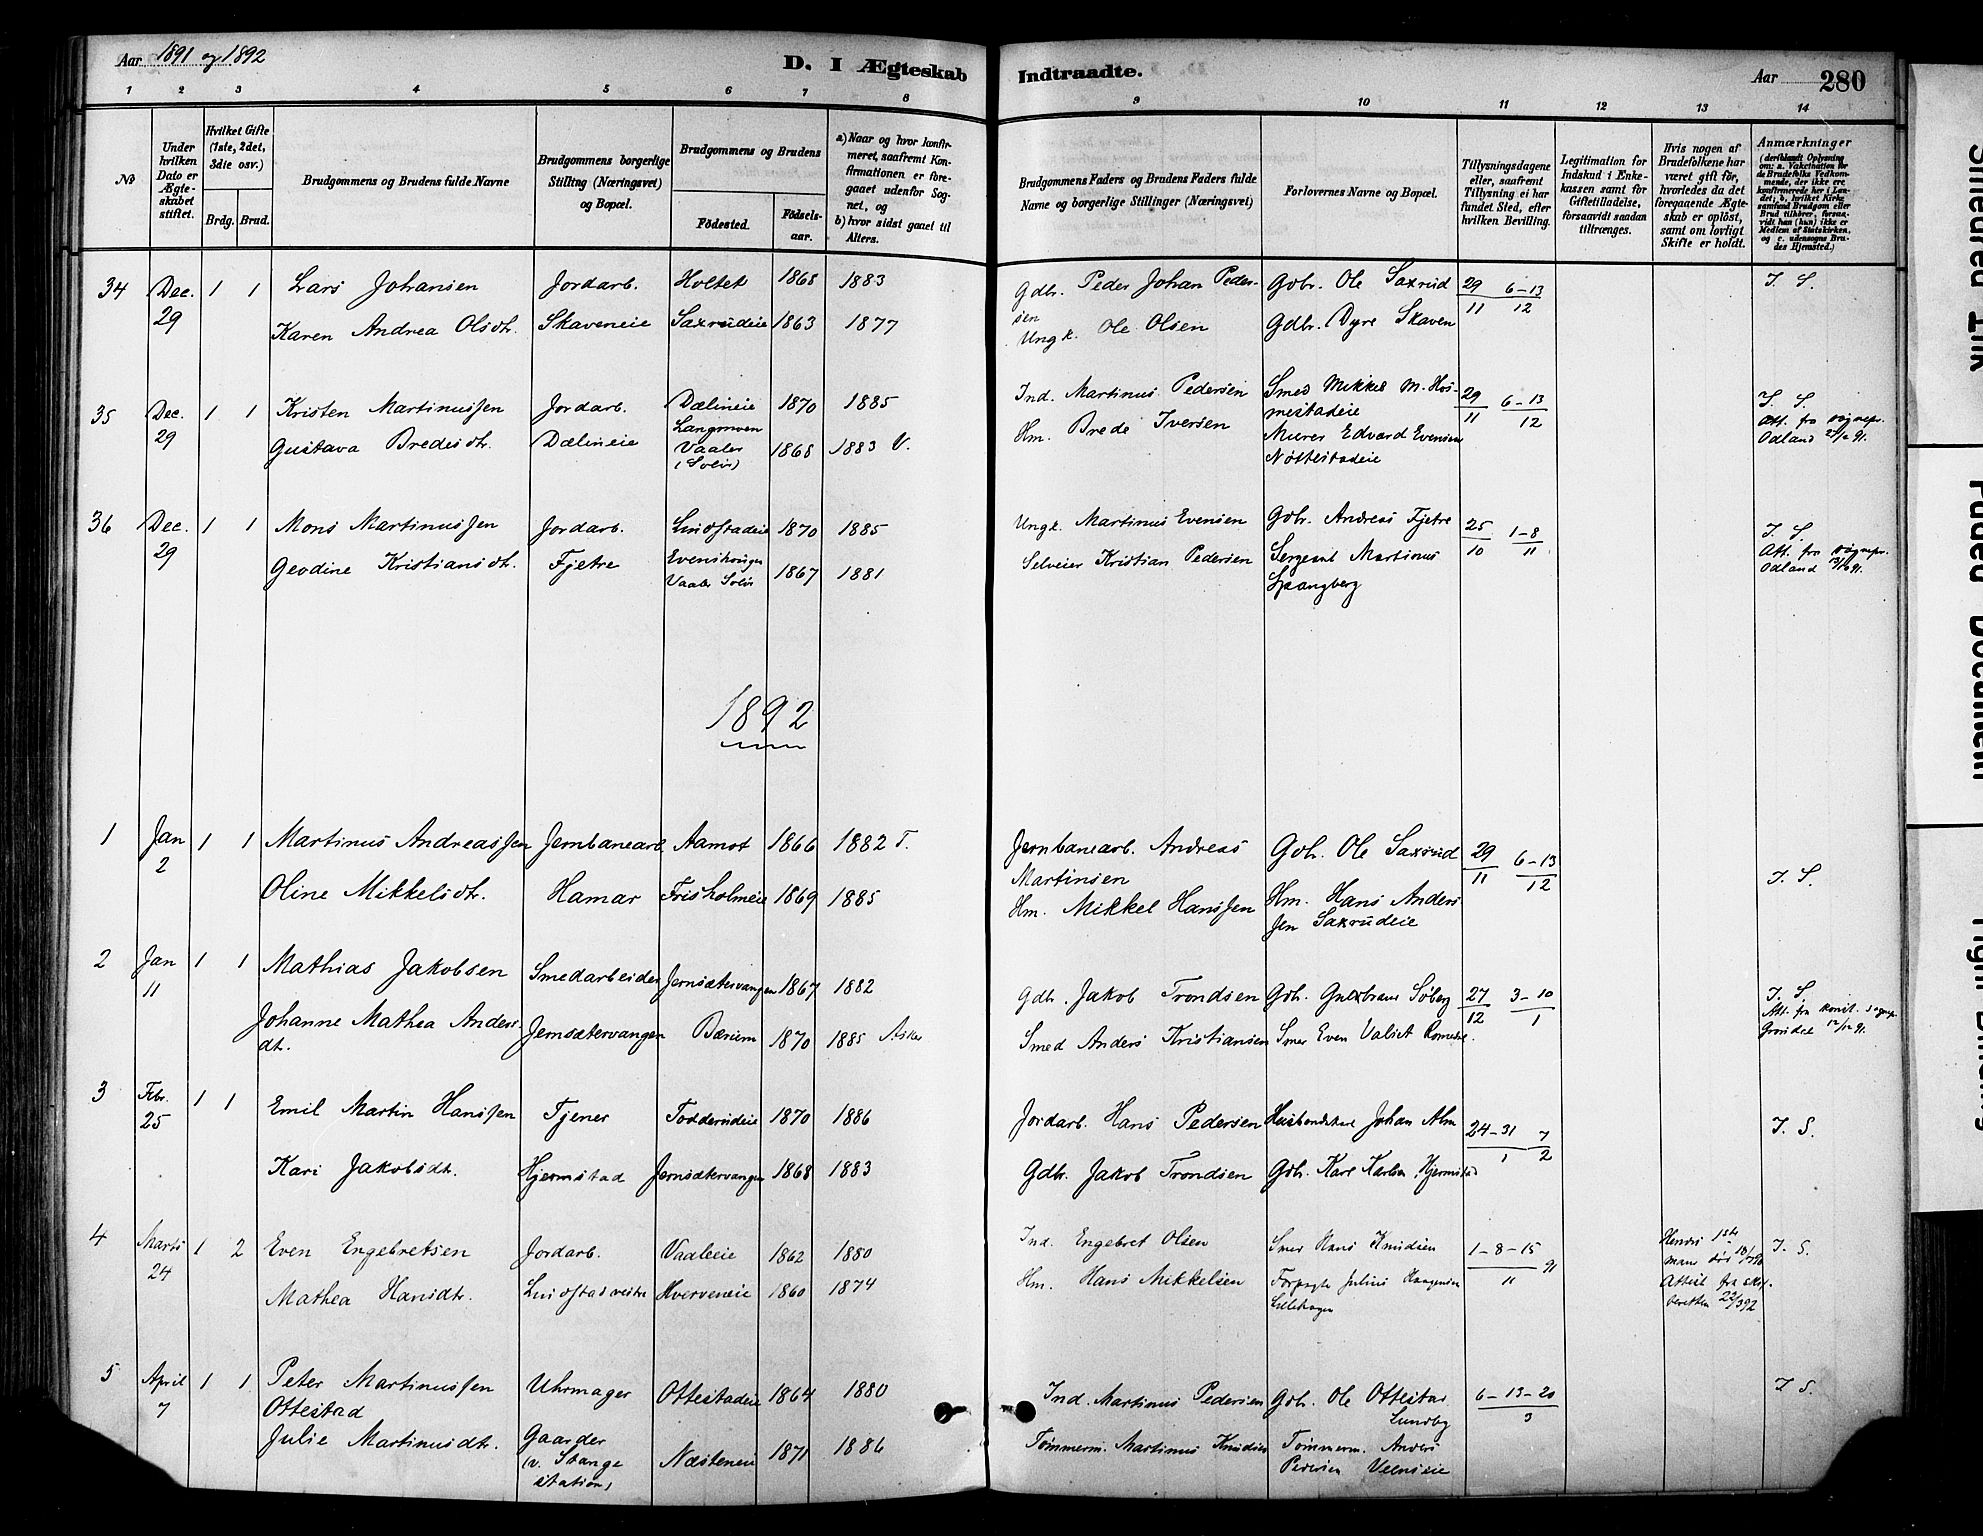 Aar 1891 og 1892
D. I Ægteskab
Indtraadte.
Aar 280
1 2 3 4 5 6 7 8
9 10 11 12 13 14
No
Under hvilken Dato er Ægteskabet stiftet.
Hvilket Gifte (1ste, 2det, 3die osv.)
Brdg. Brud.
Brudgommens og Brudens fulde Navne
Brudgommens borgerlige Stilling (Næringsvei) og Bopæl.
Brudgommens og Brudens
Fødested.
Fødsels-aar.
a) Naar og hvor konfirmeret, saafremt Konfirmationen er foregaaet udenfor Sognet, og
b) hvor sidst gaaet til Alters.
Brudgommens Faders og Brudens Faders fulde Navne og borgerlige Stillinger (Næringsvei)
Forlovernes Navne og Bopæl.
Tillysningsdagene eller, saafremt Tillysning ei har fundet Sted, efter hvilken Bevilling.
Legitimation for Indskud i Enkekassen samt for Giftetilladelse, forsaavidt saadan tiltrænges.
Hvis nogen af Brudefolkene har været gift før, hvorledes da det foregaaende Ægteskab er opløst, samt om lovligt Skifte er holdt.
Anmærkninger
34 Dec. 29 1 1 Lars Johansen Jordarb. Holtet 1868 1883
Gdbr. Peder Johan Pedersen Gdbr. Ole Saxrud 29/11 6-13/12 I. S.
Karen Andrea Olsdtr. Skaveneie Saxrudeie 1863 1877
Ungk. Ole Olsen Gdbr. Dyre Skaven
35 Dec. 29 1 1 Kristen Martinussen Jordarb. Dælineie 1870 1885
Ind. Martinus Pedersen Smed Mikkel M. Hosmestadeie 29/11 6-13/12 I. S.
Att. fra sognepr. Odland
Gustava Bredesdtr. Dælineie Langmoen Vaaler (Solør) 1868 1883 V.
Hm. Brede Iversen Murer Edvard Evensen Nøttestadeie
36 Dec. 29 1 1 Mons Martinussen Jordarb. Lindstadeie 1870 1885
Ungk. Martinus Evensen Gdbr. Andreas Fjetre 25/10 1-8/11 I. S.
Att. fra sognepr. Odland
Geodine Kristiansdtr. Fjetre Vaaler Solør 1867 1881
Selveier Kristian Pedersen Sergeant Martinus Spangberg
1892
1 Jan 2 1 1 Martinus Andreassen Jernbanearb. Aamot 1866 1882 T.
Jernbanearb. Andreas Martinsen Gdbr. Ole Saxrud 29/11 6-13/12 I. S.
Oline Mikkelsdtr. Hamar Frisholmeie 1869 1885
Hm. Mikkel Hanssen Hm. Hans Anderssen Saxrudeie
2 Jan 11 1 1 Mathias Jakobsen Smedarbeider Jernsætervangen 1867 1882
Gdbr. Jakob Trondsen Gdbr. Gulbrand Søberg 27/12 3-10/1 I. S.
Att. fra konst. sognepr.
Johanne Mathea Andersdt. Jernsætervangen Bærum 1870 1885 Asker
Smed Anders Kristiansen Smed Even Valset Romedal.
3 Febr. 25 1 1 Emil Martin Hanssen Tjener Todderudeie 1870 1886
Jordarb. Hans Pedersen Husbondskarl Johan Alm 24-31/1 7/2 I. S.
Kari Jakobsdt. Hjermstad Jernsætervangen 1868 1883
Gdbr. Jakob Trondsen Gdbr. Karl Karlsen, Hjermstad
4 Marts 24 1 2 Even Engebretsen Jordarb. Vaaleeie 1862 1880
Ind. Engebret Olsen Smed Hans Knudsen 1-8-15/11 91 I. S.
Hendes 1ste man død
Attest fra
Mathea Hansdtr. Lindstad vestre Hverveneie 1860 1874
Hm. Hans Mikkelsen Forpagter Julius Haagensen Lillehagen
5 April 7 1 1 Peter Martinussen Ottestad Uhrmager Ottestadeie 1864 1880
Ind. Martinus Pedersen Gdbr. Ole Ottestad Lundby 6-13-20/3 I. S.
Julie Martinusdtr. Gaarder (v. Stange station) Næsteneie 1871 1886
Tømmerm. Martinus Knudsen Tømmerm. Anders Pedersen